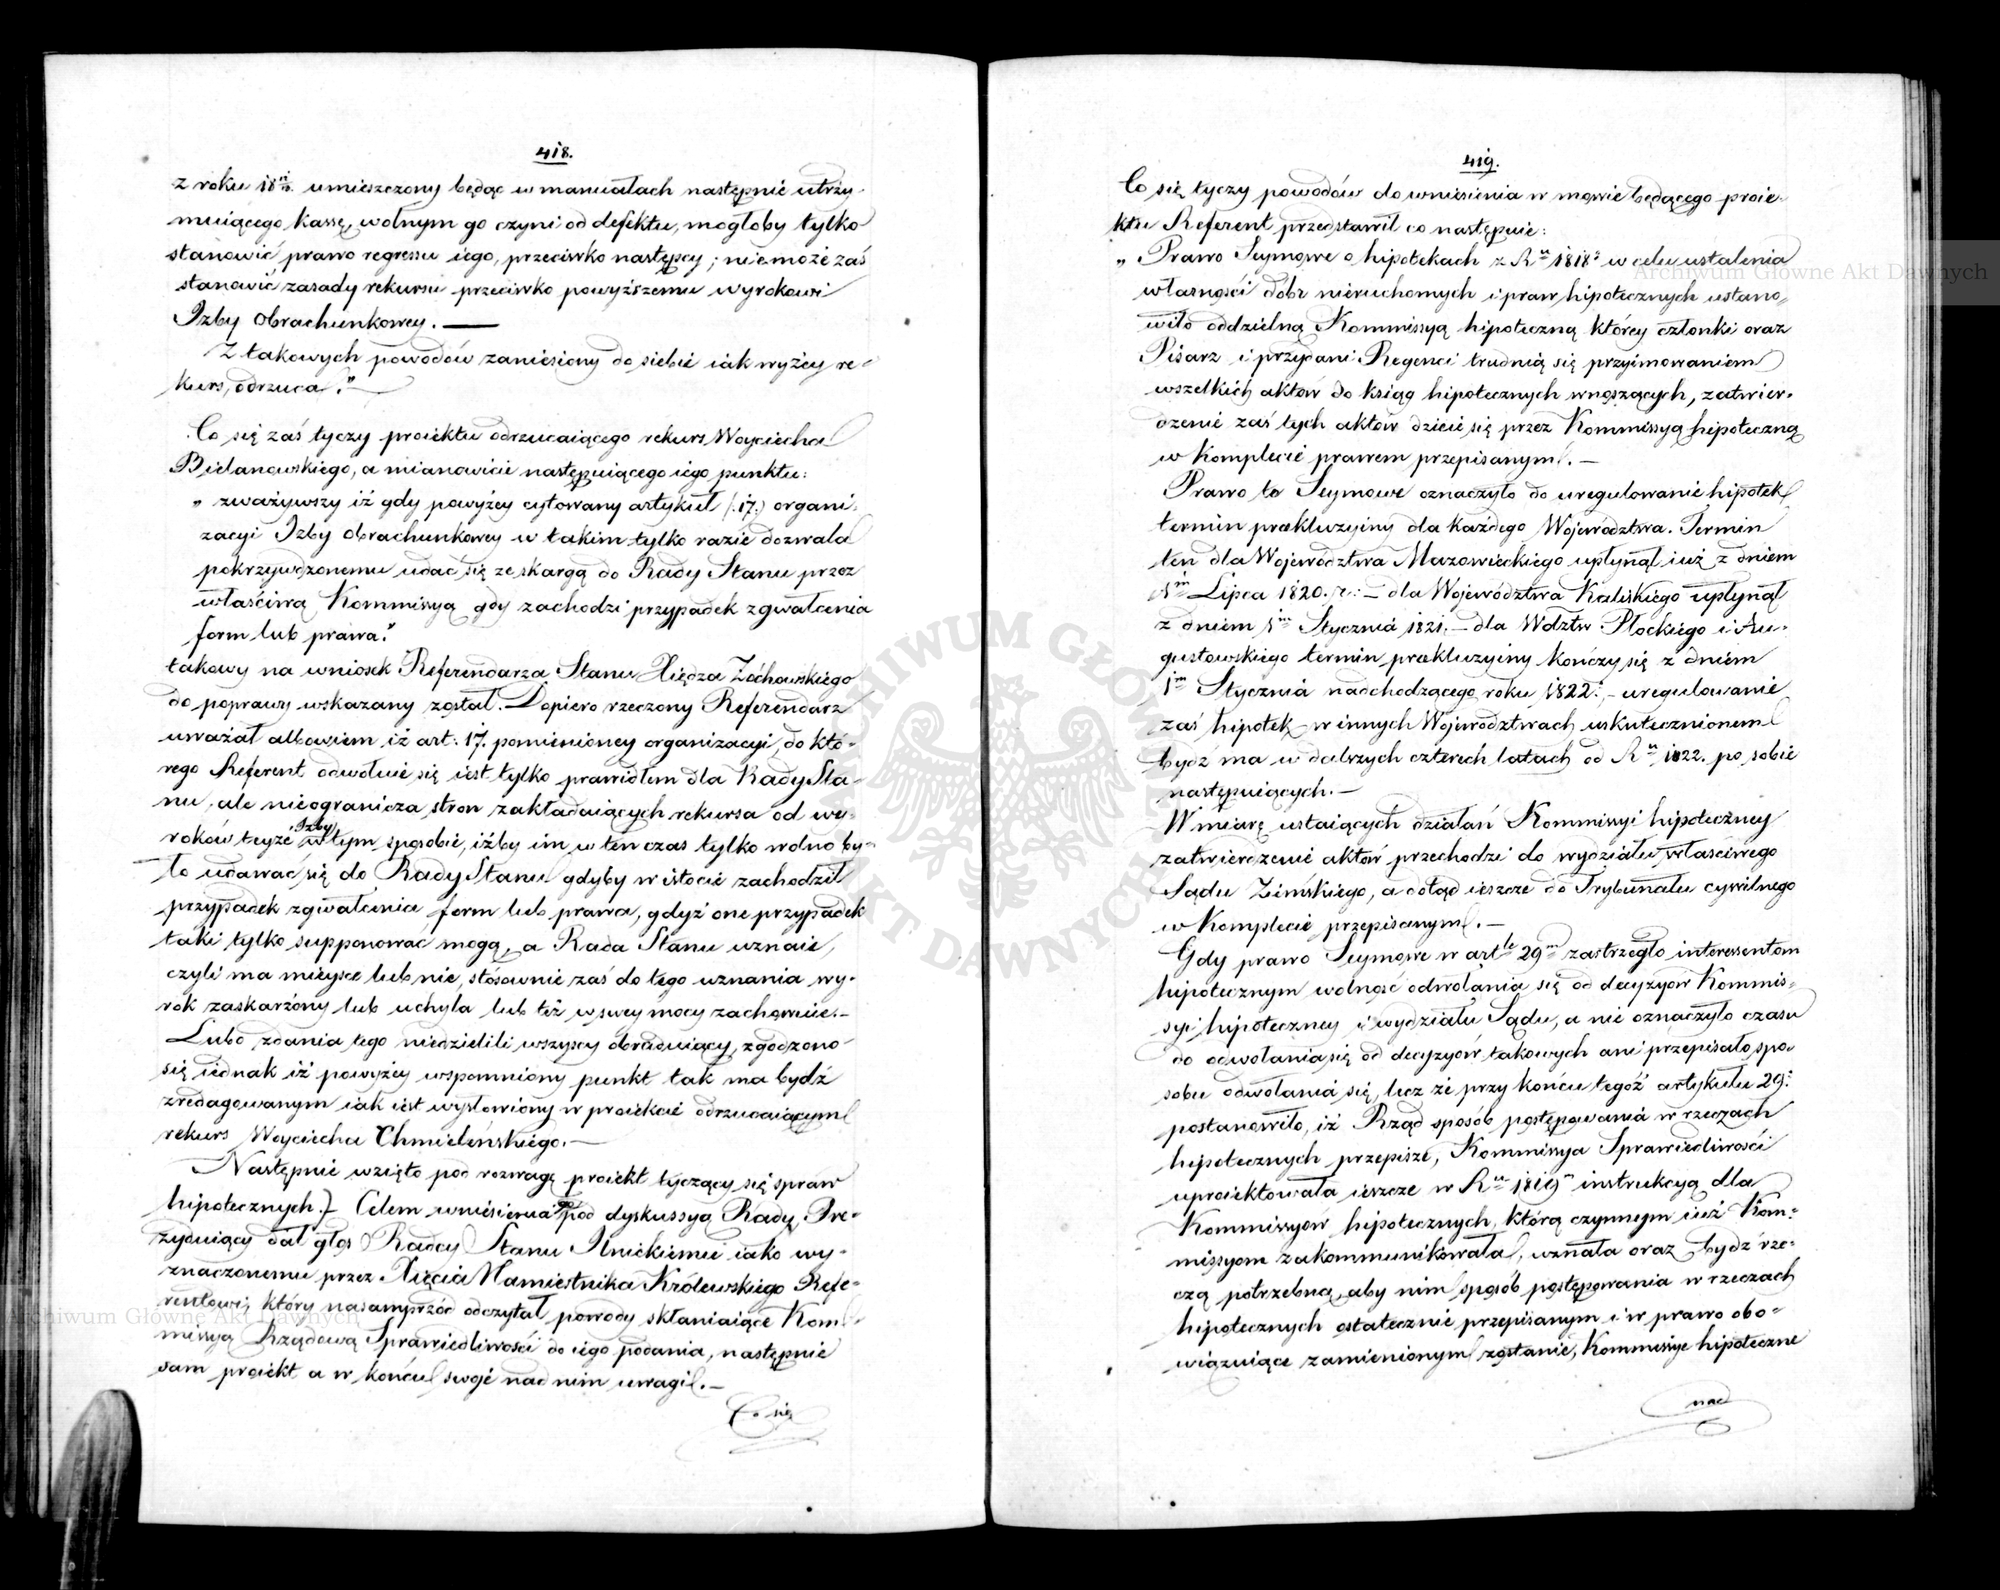 418.
z roku 18 umieszczony będąc w manuałach następnie utrzy-
muiącego kassę, wolnym go czyni od defektu, mogłoby tylko
stanowić prawo regressu iego, przeciwko następcy; nie może zaś
stanowić zasady rekursu przeciwko powyższemu wyrokowi
Izby Obrachunkowey. —
Z takowych powodów zaniesiony do siebie iak wyżey re-
kurs, odrzuca." —
Co się zaś tyczy proiektu odrzucaiącego rekurs Woyciecha
Bielanowskiego, a mianowicie następuiącego iego punktu:
„ zważywszy iż gdy powyżey cytowany artykuł (:17:) organi-
zacyi Izby Obrachunkowey w takim tylko razie dozwala
pokrzywdzonemu udać się ze skargą do Rady Stanu przez
właściwą Kommissyą gdy zachodzi przypadek zgwałcenia
form lub prawa."
takowy na wniosek Referendarza Stanu Xiędza Zóchowskiego
do poprawy wskazany został. Dopiero rzeczony Referendarz
uważał albowiem iż art: 17. pomienioney organizacyi, do któ-
rego Referent odwołuie się iest tylko prawidłem dla Rady Sta-
nu, ale nieogranicza stron zakładaiących rekursa od wy-
roków teyże Izby w tym sposobie, iżby im w ten czas tylko wolno by-
ło udawać się do Rady Stanu gdyby w istocie zachodził
przypadek zgwałcenia form lub prawa, gdyż one przypadek
taki tylko supponować mogą, a Rada Stanu uznaie,
czyli ma mieysce lub nie, stósownie zaś do tego uznania wy-
rok zaskarżony lub uchyla lub też w swey mocy zachowuie. —
Lubo zdania tego niedzielili wszyscy obraduiący, zgodzono
się iednak iż powyżey wspomniony punkt tak ma bydź
zredagowanym iak iest wysłowiony w proiekcie odrzucaiącym
rekurs Woyciecha Chmieleńskiego. —
Następnie wzięto pod rozwagę proiekt tyczący się spraw
hipotecznych. Celem wniesienia pod dyskussyą Rady, Pre-
zyduiący dał głos Radcy Stanu Ilnickiemu iako wy-
znaczonemu przez Xięcia Namiestnika Królewskiego Refe-
rentowi, który nasamprzód odczytał powody skłaniaiące Kom-
missyą Rządową Sprawiedliwości do iego podania, następnie
sam proiekt a w końcu swoje nad nim uwagi. —
Co się
419.
Co się tyczy powodów do wniesienia w mowie będącego proie-
ktu Referent przedstawił co następuie:
„ Prawo Seymowe o hipotekach z R 1818 w celu ustalenia
własności dóbr nieruchomych i praw hipotecznych ustano-
wiło oddzielną Kommissyą hipoteczną którey członki oraz
Pisarz i przydani Regenci trudnią się przyimowaniem
wszelkich aktów do ksiąg hipotecznych wnoszących, zatwier-
dzenie zaś tych aktów dzieie się przez Kommissyą hipoteczną
w Komplecie prawem przepisanym. —
Prawo to Seymowe oznaczyło do uregulowanie hipotek
termin prekluzyiny dla każdego Województwa. Termin
ten dla Województwa Mazowieckiego upłynął iuż z dniem
1m Lipca 1820. r: — dla Województwa Kaliskiego upłynął
z dniem 1m Stycznia 1821. — dla Wdztw Płockiego i Au-
gustowskiego termin prekluzyiny kończy się z dniem
1m Stycznia nadchodzącego roku 1822: — uregulowanie
zaś hipotek w innych Województwach uskutecznionem
bydź ma w dalszych czterech latach od R 1822. po sobie
następuiących. —
W miarę ustaiących działań Kommissyi hipoteczney
zatwierdzenie aktów przechodzi do wydziału właściwego
Sądu Ziemskiego, a dotąd ieszcze do Trybunału cywilnego
w Komplecie przepisanym. —
Gdy prawo Seymowe w artle 29m zastrzegło interessentom
hipotecznym wolność odwołania się od decyzyów Kommis-
syi hipoteczney i wydziału Sądu, a nie oznaczyło czasu
do odwołania się od decyzyów takowych ani przepisało spo-
sobu odwołania się, lecz że przy końcu tegoż artykułu 29:
postanowiło, iż Rząd sposób postępowania w rzeczach
hipotecznych przepisze, Kommissya Sprawiedliwości
uproiektowała ieszcze w R 1819m instrukcyą dla
Kommissyów hipotecznych, którą czynnym iuż Kom-
missyom zakommunikowała, uznała oraz bydź rze-
czą potrzebną, aby nim sposób postępowania w rzeczach
hipotecznych ostatecznie przepisanym i w prawo obo-
wiązuiące zamienionym zostanie, Kommissye hipoteczne
nad
Archiwum Główne Akt Dawnych
Archiwum Główne Akt Dawnych
ARCHIWUM GŁÓWNE AKT DAWNYCH